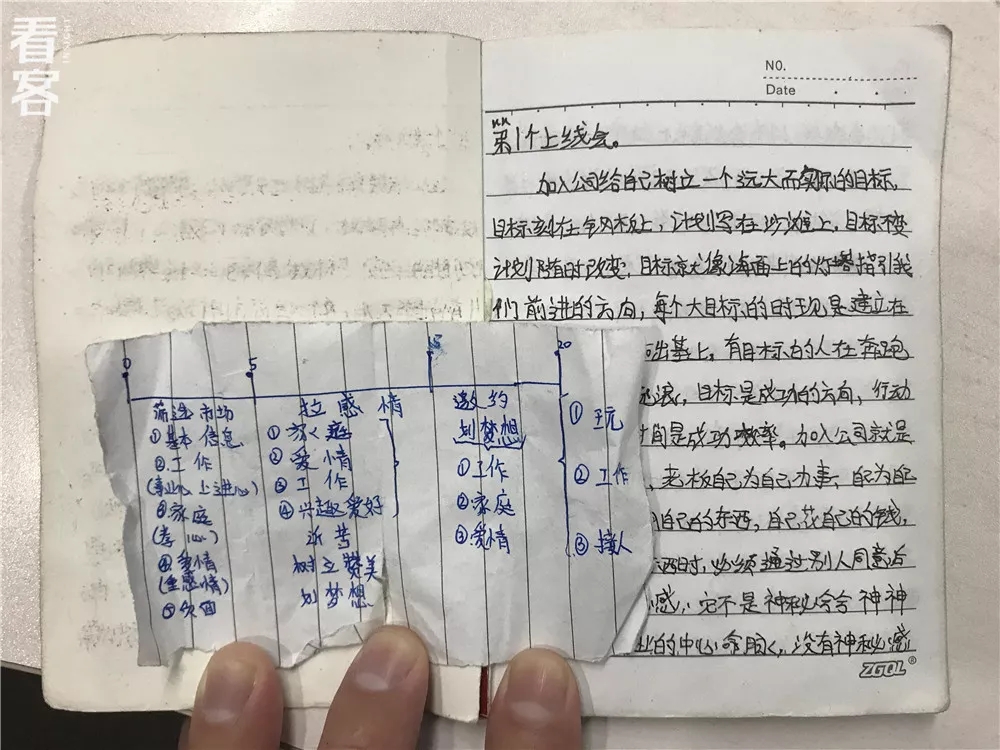 看客
NO.
Date
第1个上线会。
加入公司给自己树立一个远大而实际的目标,
目标刻在钢板上,计划写在沙滩上,目标不变
计划随时改变,目标就像海面上的灯塔指引我
们前进的方向,每个大目标的时现是建立在
础基上,有目标的人在奔跑
流浪,目标是成功的方向,行动
间是成功效率。加入公司就是
老板自己为自己办事,
自己的东西,自己花自己的钱,
西时,必须通过别人同意后
感,它不是神秘会会神神
业的中心命脉,没有神秘感
ZGQL®
0 5 20
筛选市场
①基本信息
②工作
(事业心上进心)
③家庭
(孝心)
④爱情
(重感情)
拉感情
①家庭
②爱情
③工作
④兴趣爱好
诉苦
树立赞美
划梦想
邀约
划梦想
①工作
②家庭
③爱情
①玩
②工作
③接人